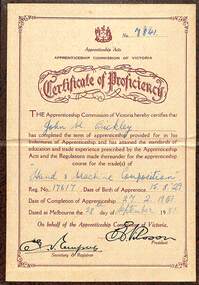 No. 7841
Apprenticeship Acts
APPRENTICESHIP COMMISSION OF VICTORIA
Certificate of Proficiency
THE Apprenticeship Commission of Victoria hereby certifies that
John M. Buckley
has completed the term of apprenticeship provided for in his
Indentures of Apprenticeship and has attained the standards of
education and trade experience prescribed by the Apprenticeship
Act and the Regulations made thereunder for the apprenticeship
course for the trade(s) of
Hand & Machine Composition
Reg. No. 17617 Date of Birth of Apprentice
Date of Completion of Apprenticeship 27. 2. 1951
Dated at Melbourne the 28th day of September 1951
On behalf of the Apprenticeship Commission of Victoria.
President.
Secretary & Registrar